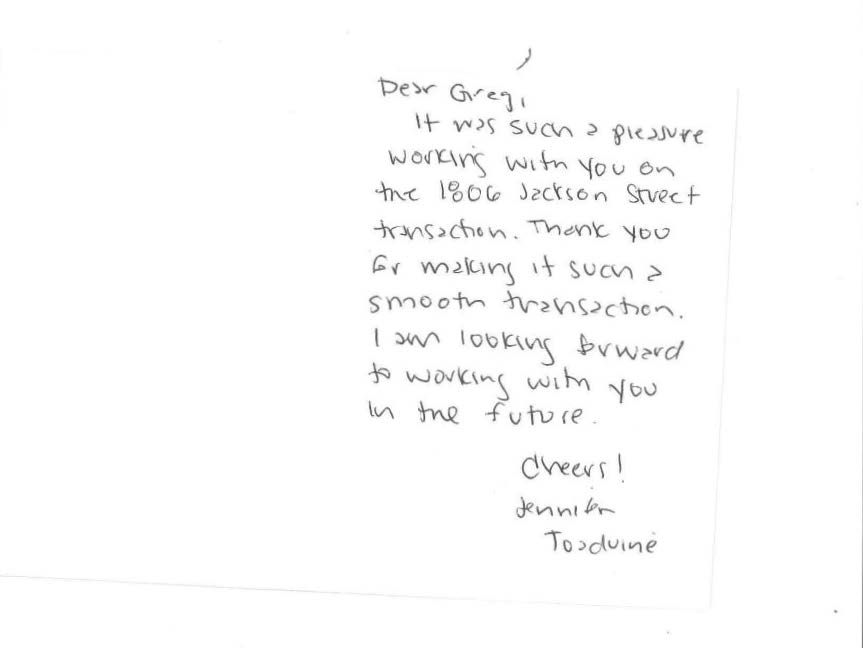 Dear Greg,
It was such a pleasure
working with you on
the 1806 Jackson Street
transaction. Thank you
for making it such a
smooth transaction.
I am looking forward
to working with you
in the future.
Cheers!
Jennifer
Toaduine